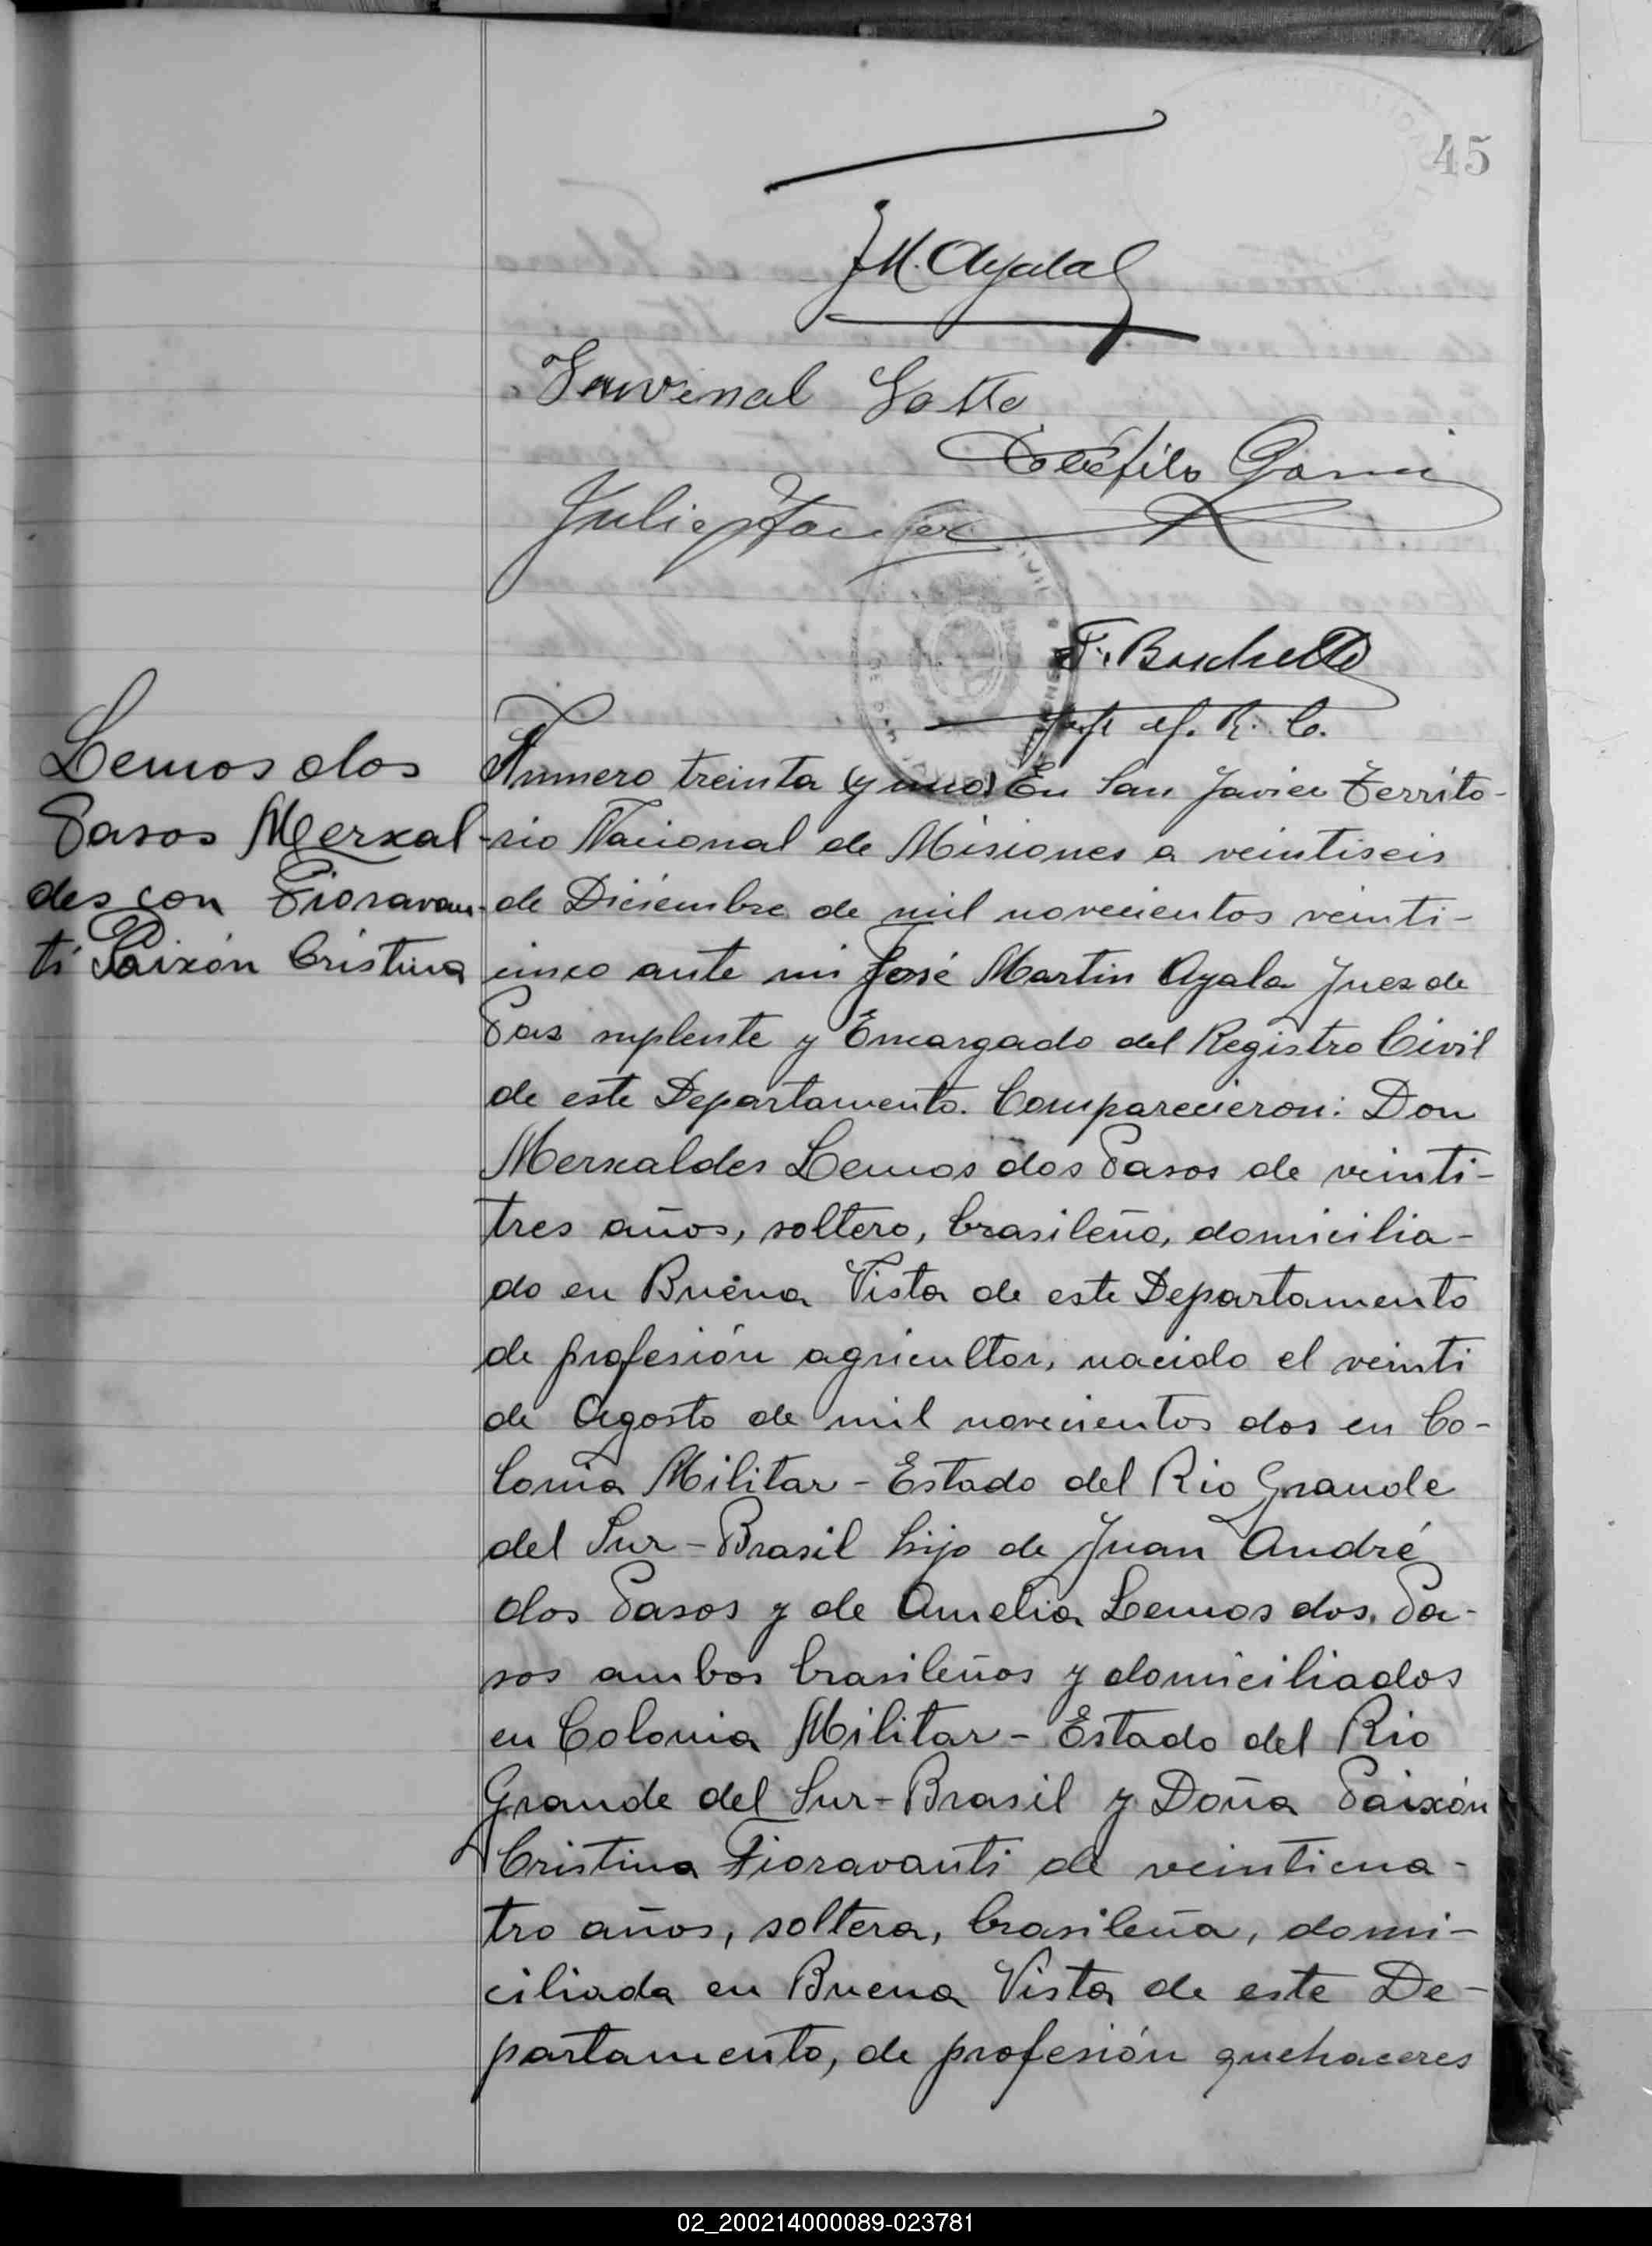 45
J M. Ayala
F. Buchette
Jefe del R. C.
Lemos dos
Pasos Merxal-
des con Fioravan-
ti Paixón Cristina
Numero treinta (y uno) En San Javier Territo-
rio Nacional de Misiones a veintiseis
de Diciembre de mil novecientos veinti-
cinco ante mi José Martin Ayala Juez de
Paz suplente y Encargado del Registro Civil
de este Departamento. Comparecieron: Don
Merxaldes Lemos dos Pasos de veinti-
tres años, soltero, brasileño, domicilia-
do en Buena Vista de este Departamento
de profesión agricultor, nacido el veinti
de Agosto de mil novecientos dos en Co-
lonia Militar - Estado del Rio Grande
del Sur - Brasil hijo de Juan André
dos Pasos y de Amelia Lemos dos Pa-
sos ambos brasileños y domiciliados
en Colonia Militar - Estado del Rio
Grande del Sur - Brasil y Doña Paixón
Cristina Fioravanti de veinticua-
tro años, soltera, brasileña, domi-
ciliada en Buena Vista de este De-
partamento, de profesión quehaceres
02_200214000089-023781